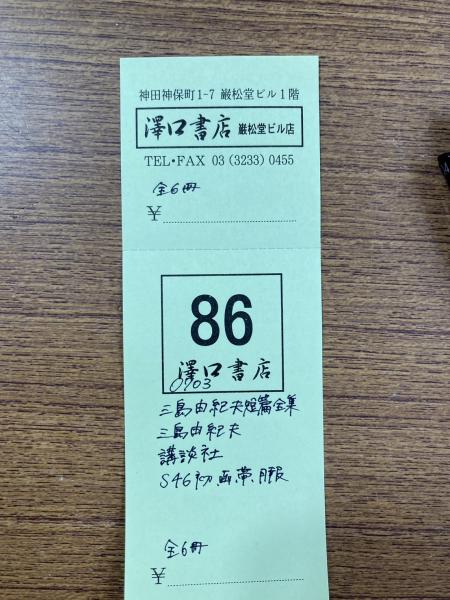 神田神保町1-7 巌松堂ビル1階
澤口書店 巌松堂ビル店
TEL・FAX 03(3233)0455
全6冊
¥
86
澤口書店
0903
三島由紀夫短篇全集
三島由紀夫
講談社
S46初函帯月報
全6冊
¥